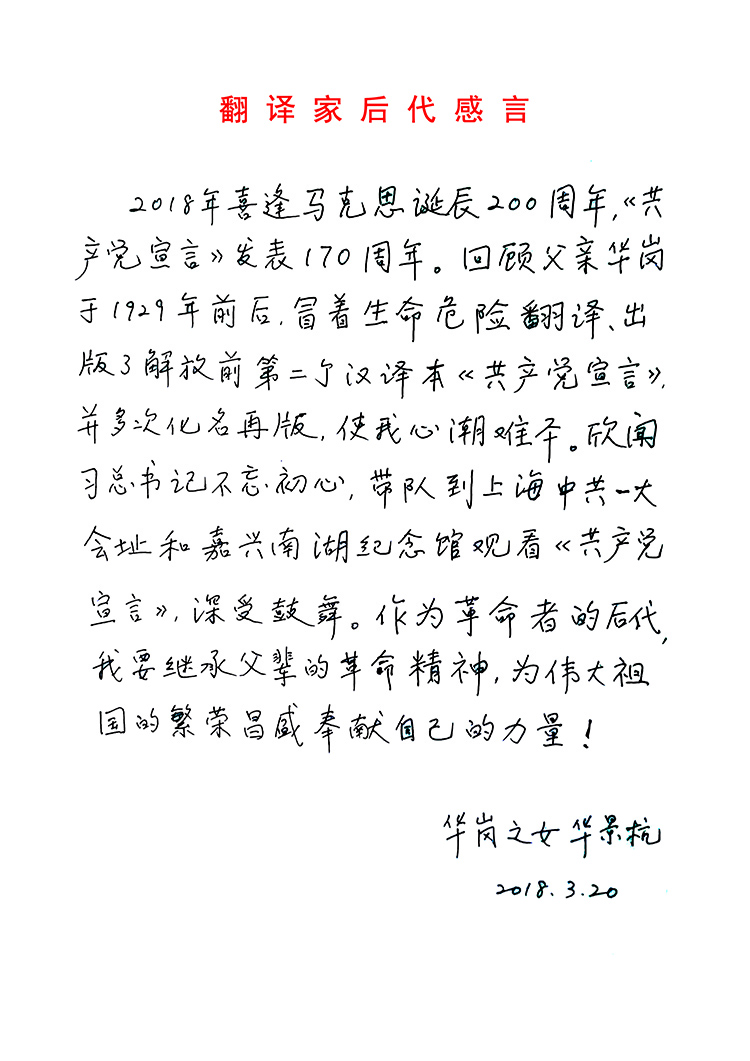 翻译家后代感言
2018年喜逢马克思诞辰200周年，《共
产党宣言》发表170周年。回顾父亲华岗
于1929年前后，冒着生命危险翻译、出
版了解放前第二个汉译本《共产党宣言》，
并多次化名再版，使我心潮难平。欣闻
习总书记不忘初心，带队到上海中共一大
会址和嘉兴南湖纪念馆观看《共产党
宣言》，深受鼓舞。作为革命者的后代，
我要继承父辈的革命精神，为伟大祖
国的繁荣昌盛奉献自己的力量！
华岗之女华景杭
2018.3.20